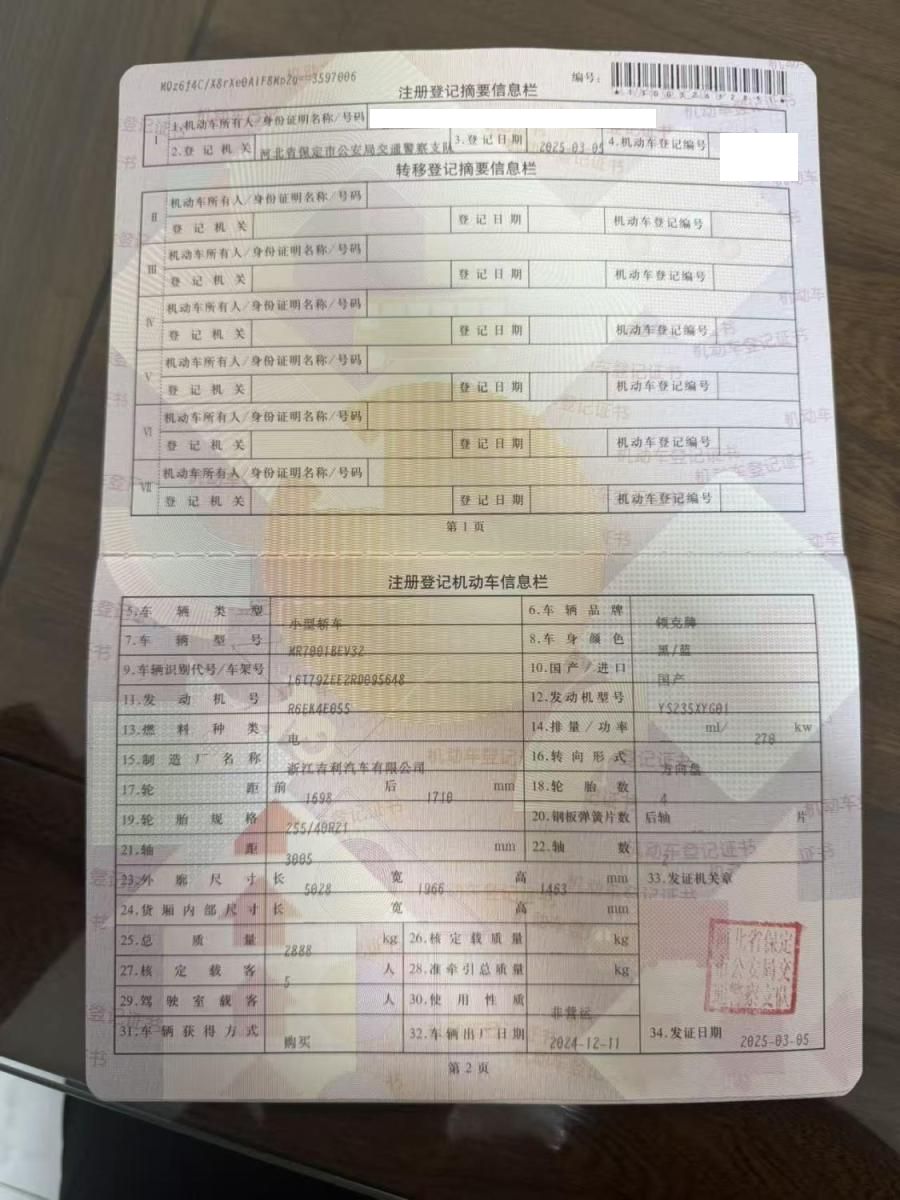 MQz6f4C/X8rXe0AiF8Mp2g==3597006
编号:
注册登记摘要信息栏
I 1.机动车所有人/身份证明名称/号码
2.登记机关 河北省保定市公安局交通警察支队 3.登记日期 2025-03-05 4.机动车登记编号
转移登记摘要信息栏
II 机动车所有人/身份证明名称/号码
登记机关 登记日期 机动车登记编号
III 机动车所有人/身份证明名称/号码
登记机关 登记日期 机动车登记编号
IV 机动车所有人/身份证明名称/号码
登记机关 登记日期 机动车登记编号
V 机动车所有人/身份证明名称/号码
登记机关 登记日期 机动车登记编号
VI 机动车所有人/身份证明名称/号码
登记机关 登记日期 机动车登记编号
VII 机动车所有人/身份证明名称/号码
登记机关 登记日期 机动车登记编号
第1页
注册登记机动车信息栏
5.车辆类型 小型轿车 6.车辆品牌 领克牌
7.车辆型号 MR7001BEV32 8.车身颜色 黑/蓝
9.车辆识别代号/车架号 L6T79ZEEZRD095648 10.国产/进口 国产
11.发动机号 R6EK4E055 12.发动机型号 YS235XYG01
13.燃料种类 电 14.排量/功率 ml/ 270 kw
15.制造厂名称 浙江吉利汽车有限公司 16.转向形式 方向盘
17.轮距 前 1698 后 1710 mm 18.轮胎数 4
19.轮胎规格 255/40R21 20.钢板弹簧片数 后轴 片
21.轴距 3005 mm 22.轴数 2
23.外廓尺寸 长 5028 宽 1966 高 1463 mm 33.发证机关章
24.货厢内部尺寸 长 宽 高 mm
25.总质量 2888 kg 26.核定载质量 kg
27.核定载客 5 人 28.准牵引总质量 kg
29.驾驶室载客 人 30.使用性质 非营运
31.车辆获得方式 购买 32.车辆出厂日期 2024-12-11 34.发证日期 2025-03-05
河北省保定
市公安局交
通警察支队
第2页